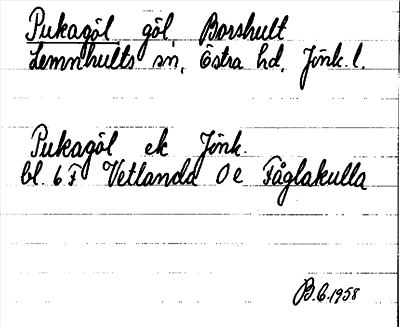 Pukagöl, göl, Borshult
Lemnhults sn, Östra hd, Jönk. l.
Pukagöl ek Jönk.
bl. 6 F Vetlanda 0 e Fåglakulla
B.G. 1958